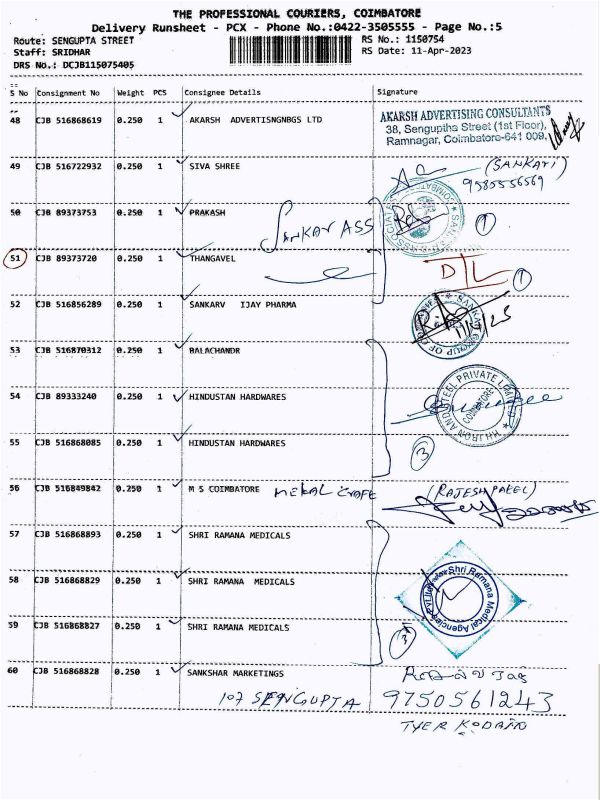 THE PROFESSIONAL COURIERS, COIMBATORE
Delivery Runsheet - PCX - Phone No.:0422-3505555 - Page No.:5
Route: SENGUPTA STREET RS No.: 1150754
Staff: SRIDHAR RS Date: 11-Apr-2023
DRS No.: DCJB115075405
S No Consignment No Weight PCS Consignee Details Signature
48 CJB 516868619 0.250 1 AKARSH ADVERTISNGNBGS LTD
AKARSH ADVERTISING CONSULTANTS
38, Senguptha Street (1st Floor),
Ramnagar, Coimbatore-641 009.
49 CJB 516722932 0.250 1 SIVA SHREE (SANKARI)
50 CJB 89373753 0.250 1 PRAKASH SANKAR ASS 1
51 CJB 89373720 0.250 1 THANGAVEL DTL 1
52 CJB 516856289 0.250 1 SANKARV IJAY PHARMA
53 CJB 516870312 0.250 1 BALACHANDR
54 CJB 89333240 0.250 1 HINDUSTAN HARDWARES
55 CJB 516868085 0.250 1 HINDUSTAN HARDWARES 3
56 CJB 516849842 0.250 1 M S COIMBATORE (RAJESH PATEL)
57 CJB 516868893 0.250 1 SHRI RAMANA MEDICALS
58 CJB 516868829 0.250 1 SHRI RAMANA MEDICALS
Shri Ramana Medical Agencies
59 CJB 516868827 0.250 1 SHRI RAMANA MEDICALS 3
60 CJB 516868828 0.250 1 SANKSHAR MARKETINGS
107 SENGUPTA 9750561243